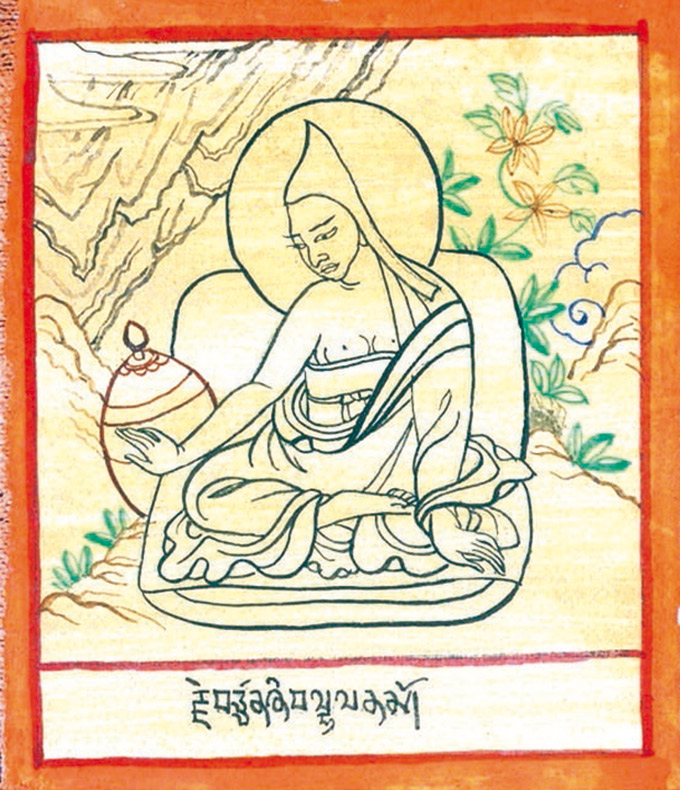 རྗེ་བཙུན་ཞི་བ་ལྷ་ལ་ན་མོ།